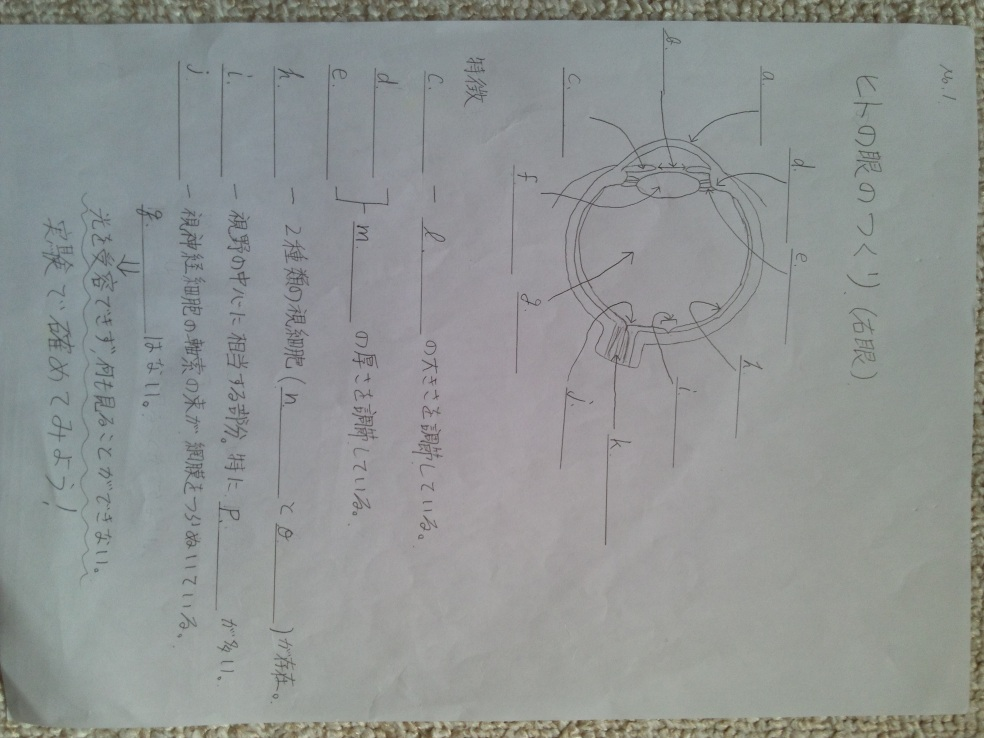 No.1
ヒトの眼のつくり(右眼)
a.
b.
c.
d.
e.
f.
g.
h.
i.
j.
k.
特徴
c. ー l. の大きさを調節している。
d.
e. m. の厚さを調節している。
h. ー 2種類の視細胞(n. とo. )が存在。
i. ー 視野の中心に相当する部分。特に p. が多い。
j. ー 視神経細胞の軸索の束が網膜をつらぬいている。
q. はない。
⇓
光を受容できず、何も見ることができない。
実験で確めてみよう!